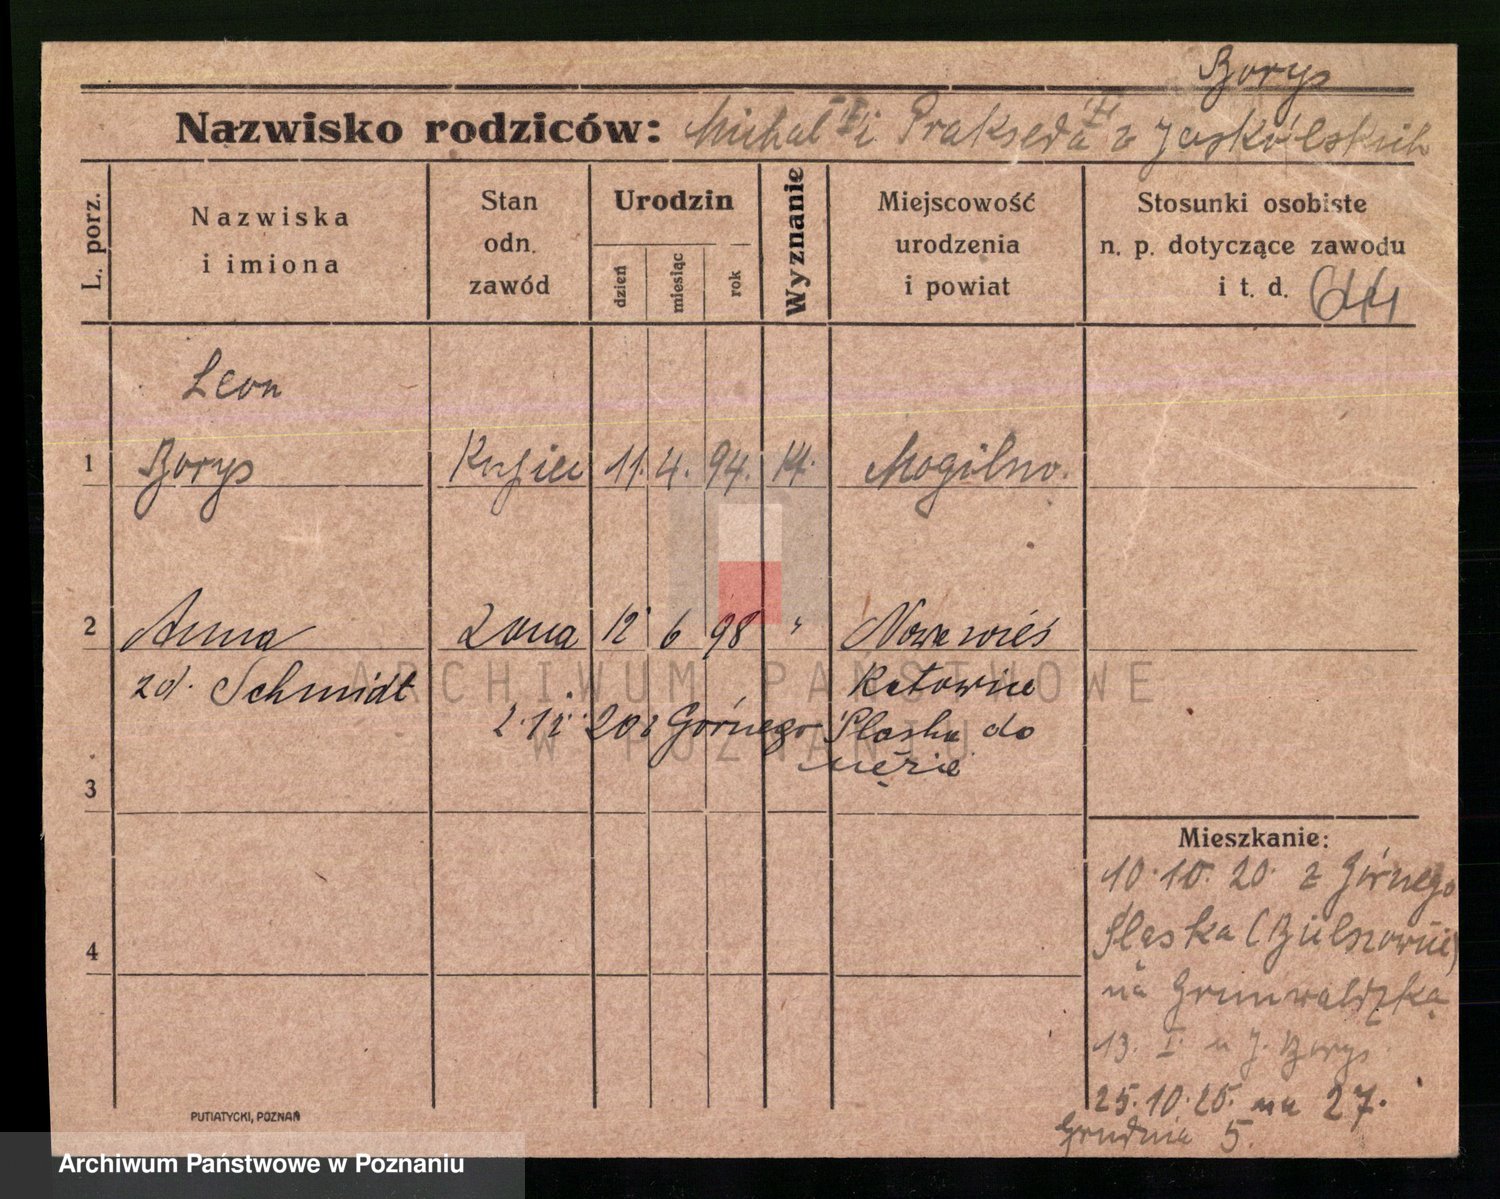 Borys
Nazwisko rodziców: Michał i Prakseda z Jaskólskich
L. porz.
Nazwiska i imiona
Stan odn. zawód
Urodzin
dzień
miesiąc
rok
Wyznanie
Miejscowość urodzenia i powiat
Stosunki osobiste n. p. dotyczące zawodu i t. d.
Leon
1 Borys Kupiec 11. 4. 94. Mogilno.
2 Anna Żona 12 6 98 " Nowawieś
zd. Schmidt Katowice
2.12.20 z Górnego Śląska do
męża
3
Mieszkanie:
10.10.20. z Górnego
Śląska
4
na Grunwaldzką
13. I. u J. Borys
25.10.20. na 27.
Grudnia 5.
PUTIATYCKI, POZNAŃ
ARCHIWUM PAŃSTWOWE
W POZNANIU
Archiwum Państwowe w Poznaniu